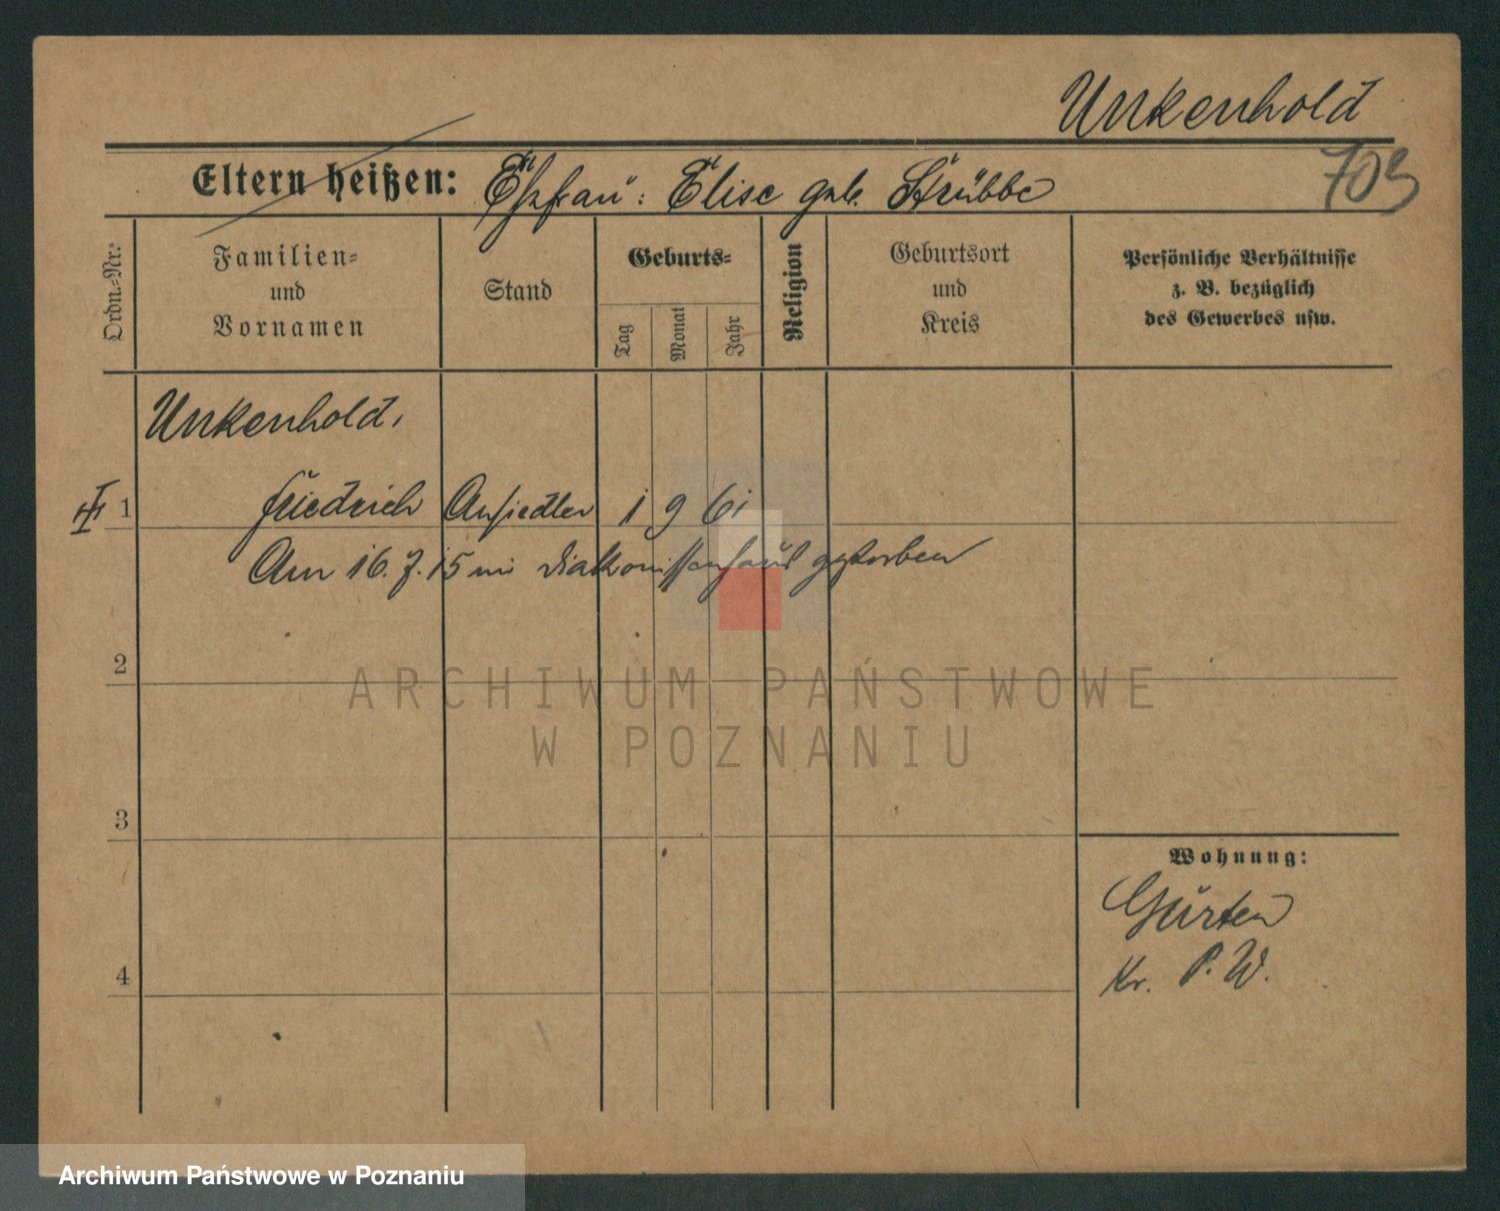 Unkenhold
703
Eltern heißen: Ehefrau: Elise geb. Strübbe
Ordn.-Nr.
Familien-
und
Vornamen
Stand
Geburts-
Tag
Monat
Jahr
Religion
Geburtsort
und
Kreis
Persönliche Verhältnisse
z. B. bezüglich
des Gewerbes usw.
Unkenhold,
1 Friedrich Ansiedler 1 9 61
Am 16. 7. 15 im Diakonissenhaus gestorben
2
3
4
Wohnung:
Gürten
Kr. P. W.
ARCHIWUM PAŃSTWOWE
W POZNANIU
Archiwum Państwowe w Poznaniu